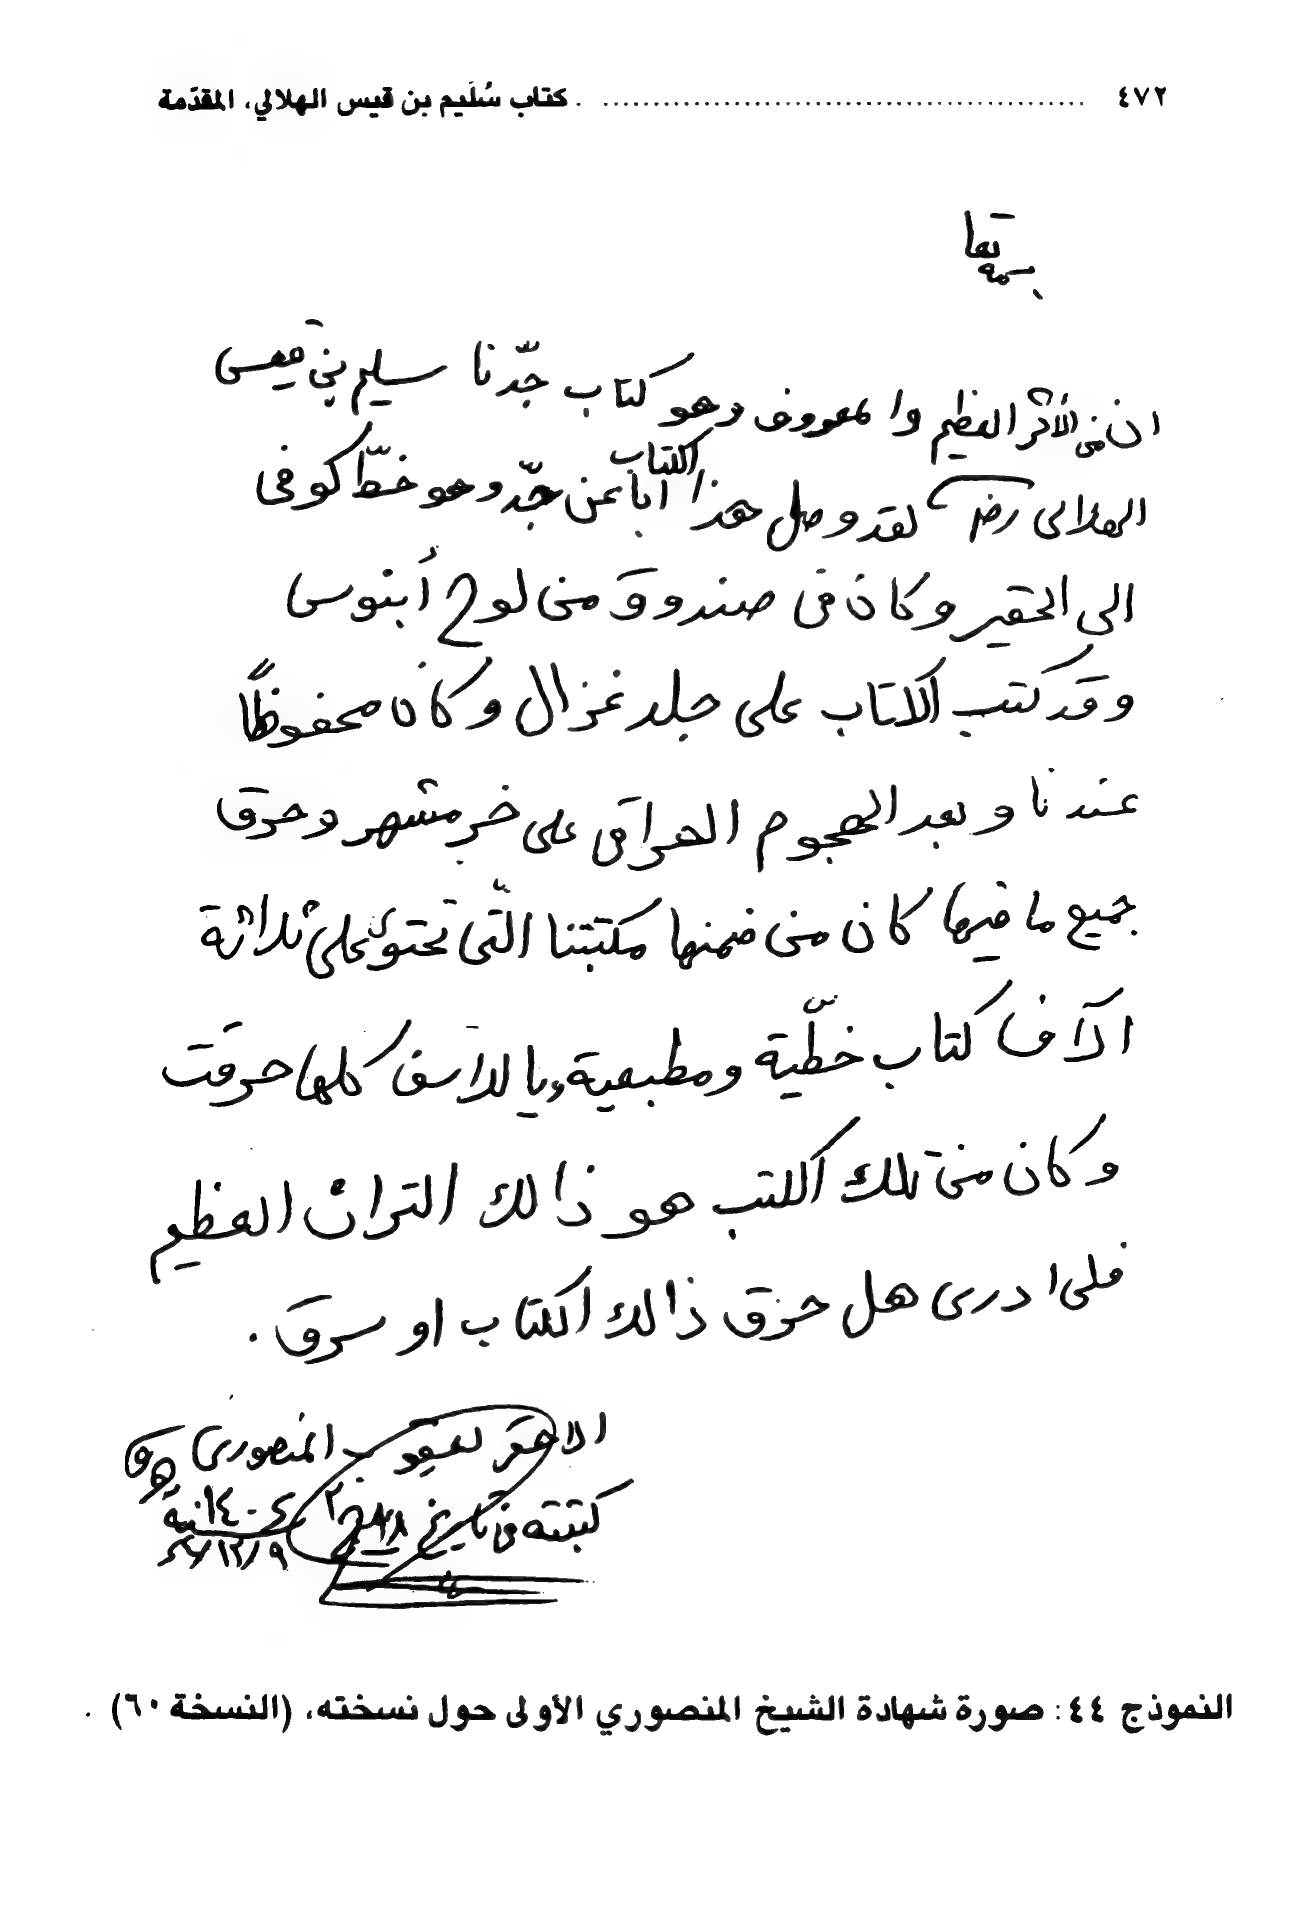 ٤٧٢ ........ كتاب سُلَيم بن قيس الهلالي، المقدّمة
بسمه تعا
ان من الأثر العظيم والمعروف وهو كتاب جدّنا سليم بن قيس
الهلالى رضـ لقد وصل هذا الكتاب أباً عن جدّ وهو خطّ كوفى
الى الحقير وكان فى صندوق من لوح أبنوس
وقد كتب الكتاب على جلد غزال وكان محفوظاً
عندنا وبعد الهجوم العراقى على خرمشهر وحرق
جميع ما فيها كان من ضمنها مكتبتنا التّى تحتوى على ثلاثة
الآف كتاب خطّية ومطبعية وبالاسف كلها حرقت
وكان من تلك الكتب هو ذالك التراث العظيم
فلا ادرى هل حرق ذالك الكتاب او سرق.
الاحقر يعقوب المنصورى
كتبته فى تاريخ ١٤٠٤
٩/١٢/
النموذج ٤٤: صورة شهادة الشيخ المنصوري الأولى حول نسخته، (النسخة ٦٠).